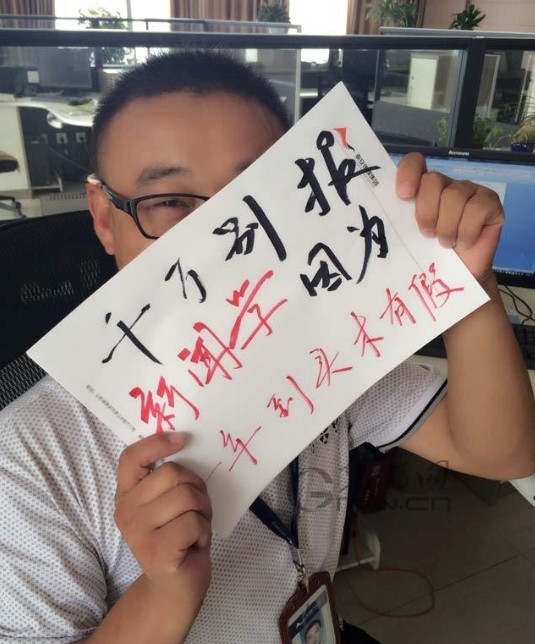 千万别报
新闻学 因为
一年到头木有假
lenovo